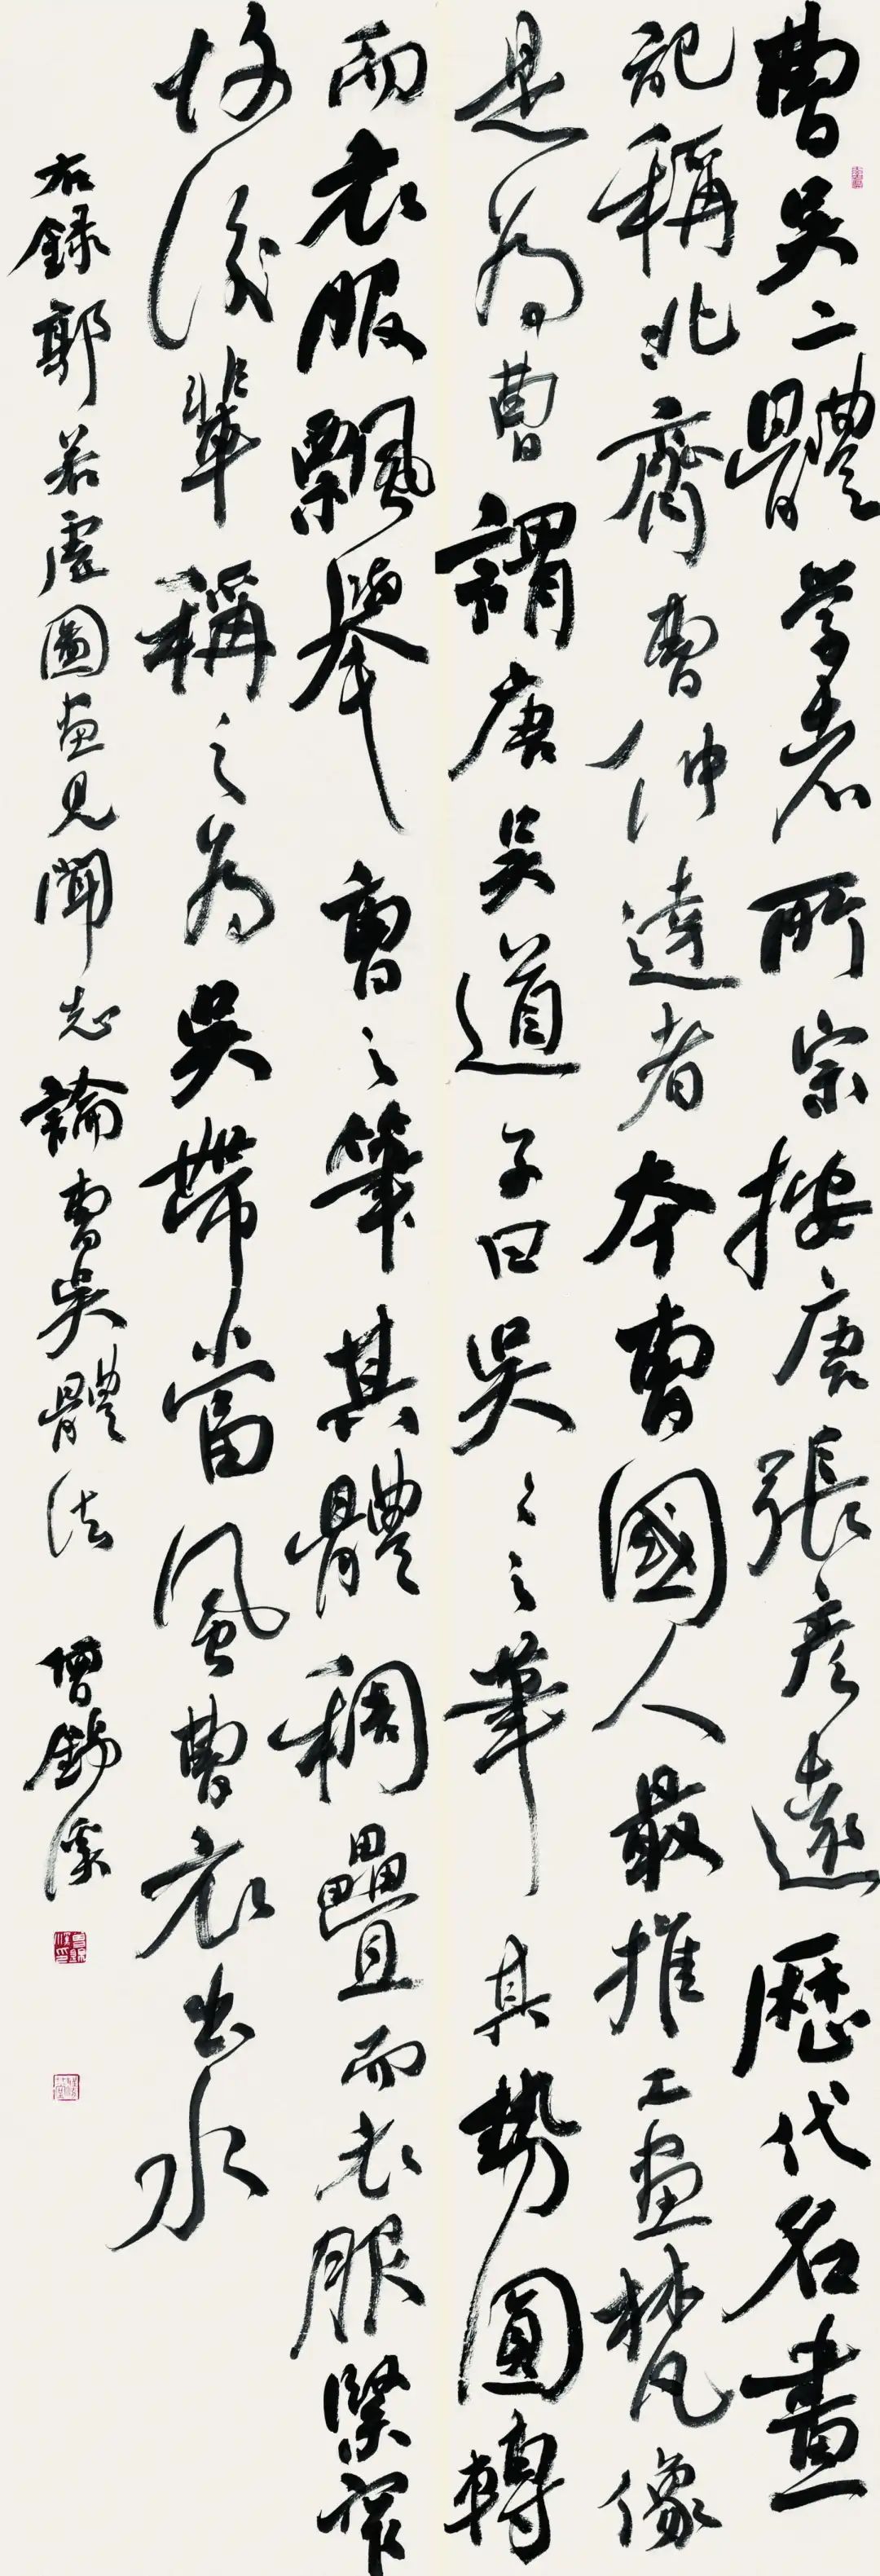 曹吳二體學者所宗按唐張彥遠歷代名畫
記稱北齊曹仲達者本曹國人最推工畫梵像
是為曹謂唐吳道子曰吳吳之筆其勢圓轉
而衣服飄舉曹之筆其體稠疊而衣服緊窄
故後輩稱之為吳帶當風曹衣出水
右錄郭若虛圖畫見聞志論曹吳體法 曾錦溪